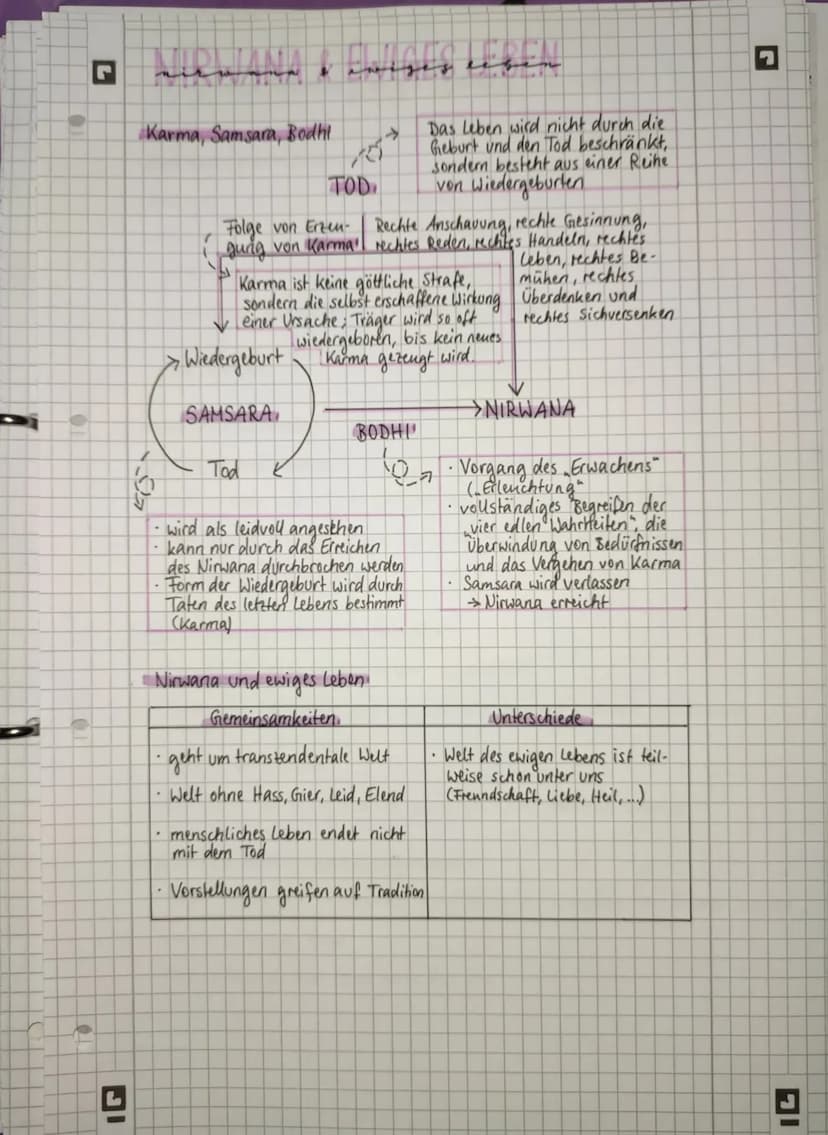 NIRWANA & EWIGES LEBEN
nirwana & ewiges leben
Karma, Samsara, Bodhi
Das Leben wird nicht durch die
Geburt und den Tod beschränkt,
sondern besteht aus einer Reihe
von Wiedergeburten
TOD
Folge von Erzeu-
gung von Karma
Rechte Anschauung, rechte Gesinnung,
rechtes Reden, rechtes Handeln, rechtes
Leben, rechtes Be-
mühen, rechtes
Überdenken und
rechtes Sichversenken
Karma ist keine göttliche Strafe,
sondern die selbst erschaffene Wirkung
einer Ursache; Träger wird so oft
wiedergeboren, bis kein neues
Karma gezeugt wird.
Wiedergeburt
SAMSARA
Tod
BODHI
NIRWANA
· Vorgang des „Erwachens"
(„Erleuchtung"
· vollständiges Begreifen der
„vier edlen Wahrheiten", die
Überwindung von Bedürfnissen
und das Vergehen von Karma
· Samsara wird verlassen
→ Nirwana erreicht
· wird als leidvoll angesehen
· kann nur durch das Erreichen
des Nirwana durchbrochen werden
· Form der Wiedergeburt wird durch
Taten des letzten Lebens bestimmt
(Karma)
Nirwana und ewiges Leben
Gemeinsamkeiten
· geht um transzendentale Welt
· Welt ohne Hass, Gier, Leid, Elend
· menschliches Leben endet nicht
mit dem Tod
· Vorstellungen greifen auf Tradition
Unterschiede
· Welt des ewigen Lebens ist teil-
weise schon unter uns
(Freundschaft, Liebe, Heil,...)